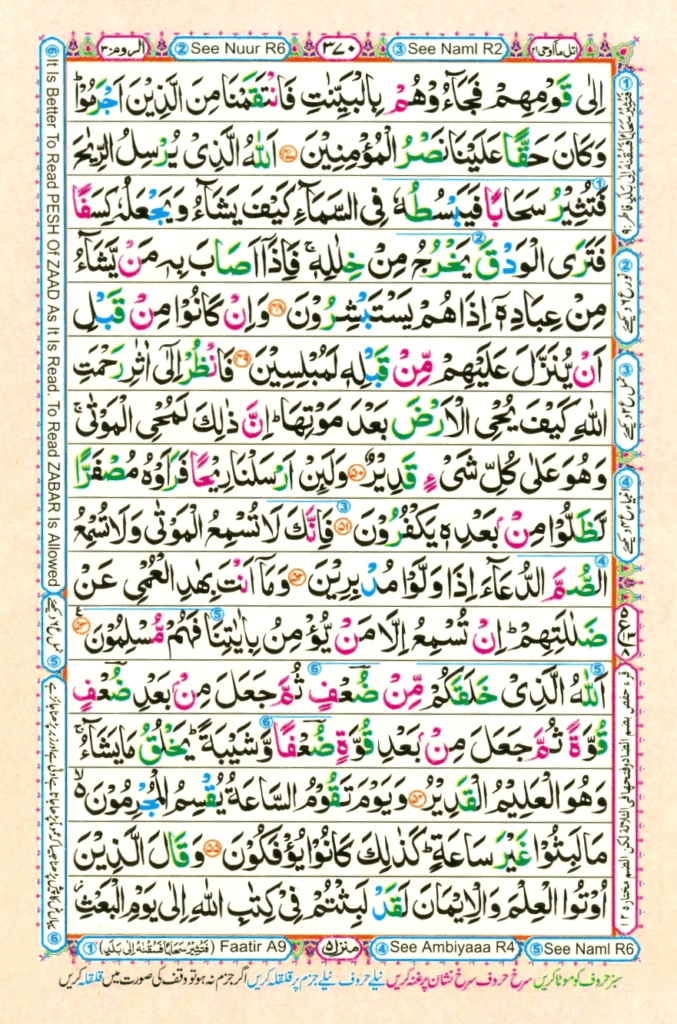 الروم ۳۰
② See Nuur R6
۳۷۰
③ See Naml R2
اتل ما اوحی ۲۱
اِلٰى قَوْمِهِمْ فَجَآءُوْهُمْ بِالْبَيِّنٰتِ فَانْتَقَمْنَا مِنَ الَّذِيْنَ اَجْرَمُوْا ؕ
وَكَانَ حَقًّا عَلَيْنَا نَصْرُ الْمُؤْمِنِيْنَ ۴۷ اَللّٰهُ الَّذِىْ يُرْسِلُ الرِّيٰحَ
فَتُثِيْرُ سَحَابًا فَيَبْسُطُهٗ فِى السَّمَآءِ كَيْفَ يَشَآءُ وَيَجْعَلُهٗ كِسَفًا
فَتَرَى الْوَدْقَ يَخْرُجُ مِنْ خِلٰلِهٖ ۚ فَاِذَاۤ اَصَابَ بِهٖ مَنْ يَّشَآءُ
مِنْ عِبَادِهٖۤ اِذَا هُمْ يَسْتَبْشِرُوْنَ ۴۸ وَاِنْ كَانُوْا مِنْ قَبْلِ
اَنْ يُّنَزَّلَ عَلَيْهِمْ مِّنْ قَبْلِهٖ لَمُبْلِسِيْنَ ۴۹ فَانْظُرْ اِلٰٓى اٰثٰرِ رَحْمَتِ
اللّٰهِ كَيْفَ يُحْىِ الْاَرْضَ بَعْدَ مَوْتِهَا ؕ اِنَّ ذٰلِكَ لَمُحْىِ الْمَوْتٰى ۚ
وَهُوَ عَلٰى كُلِّ شَىْءٍ قَدِيْرٌ ۵۰ وَلَئِنْ اَرْسَلْنَا رِيْحًا فَرَاَوْهُ مُصْفَرًّا
لَّظَلُّوْا مِنْۢ بَعْدِهٖ يَكْفُرُوْنَ ۵۱ فَاِنَّكَ لَا تُسْمِعُ الْمَوْتٰى وَلَا تُسْمِعُ
الصُّمَّ الدُّعَآءَ اِذَا وَلَّوْا مُدْبِرِيْنَ ۵۲ وَمَاۤ اَنْتَ بِهٰدِ الْعُمْىِ عَنْ
ضَلٰلَتِهِمْ ؕ اِنْ تُسْمِعُ اِلَّا مَنْ يُّؤْمِنُ بِاٰيٰتِنَا فَهُمْ مُّسْلِمُوْنَ ۵۳
اَللّٰهُ الَّذِىْ خَلَقَكُمْ مِّنْ ضُعْفٍ ثُمَّ جَعَلَ مِنْۢ بَعْدِ ضُعْفٍ
قُوَّةً ثُمَّ جَعَلَ مِنْۢ بَعْدِ قُوَّةٍ ضُعْفًا وَّشَيْبَةً ؕ يَخْلُقُ مَا يَشَآءُ ۚ
وَهُوَ الْعَلِيْمُ الْقَدِيْرُ ۵۴ وَيَوْمَ تَقُوْمُ السَّاعَةُ يُقْسِمُ الْمُجْرِمُوْنَ ۙ۬
مَا لَبِثُوْا غَيْرَ سَاعَةٍ ؕ كَذٰلِكَ كَانُوْا يُؤْفَكُوْنَ ۵۵ وَقَالَ الَّذِيْنَ
اُوْتُوا الْعِلْمَ وَالْاِيْمَانَ لَقَدْ لَبِثْتُمْ فِىْ كِتٰبِ اللّٰهِ اِلٰى يَوْمِ الْبَعْثِ ؗ
⑥ It Is Better To Read PESH Of ZAAD As It Is Read. To Read ZABAR Is Allowed
① (فَتُثِيْرُ سَحَابًا فَسُقْنٰهُ اِلٰى بَلَدٍ) Faatir A9
منزل ۵
④ See Ambiyaaa R4
⑤ See Naml R6
سبز حروف کو موٹا کریں سرخ حروف سرخ نشان پر غنہ کریں نیلے حروف نیلے جزم پر قلقلہ کریں اگر جزم نہ ہو تو وقف کی صورت میں قلقلہ کریں